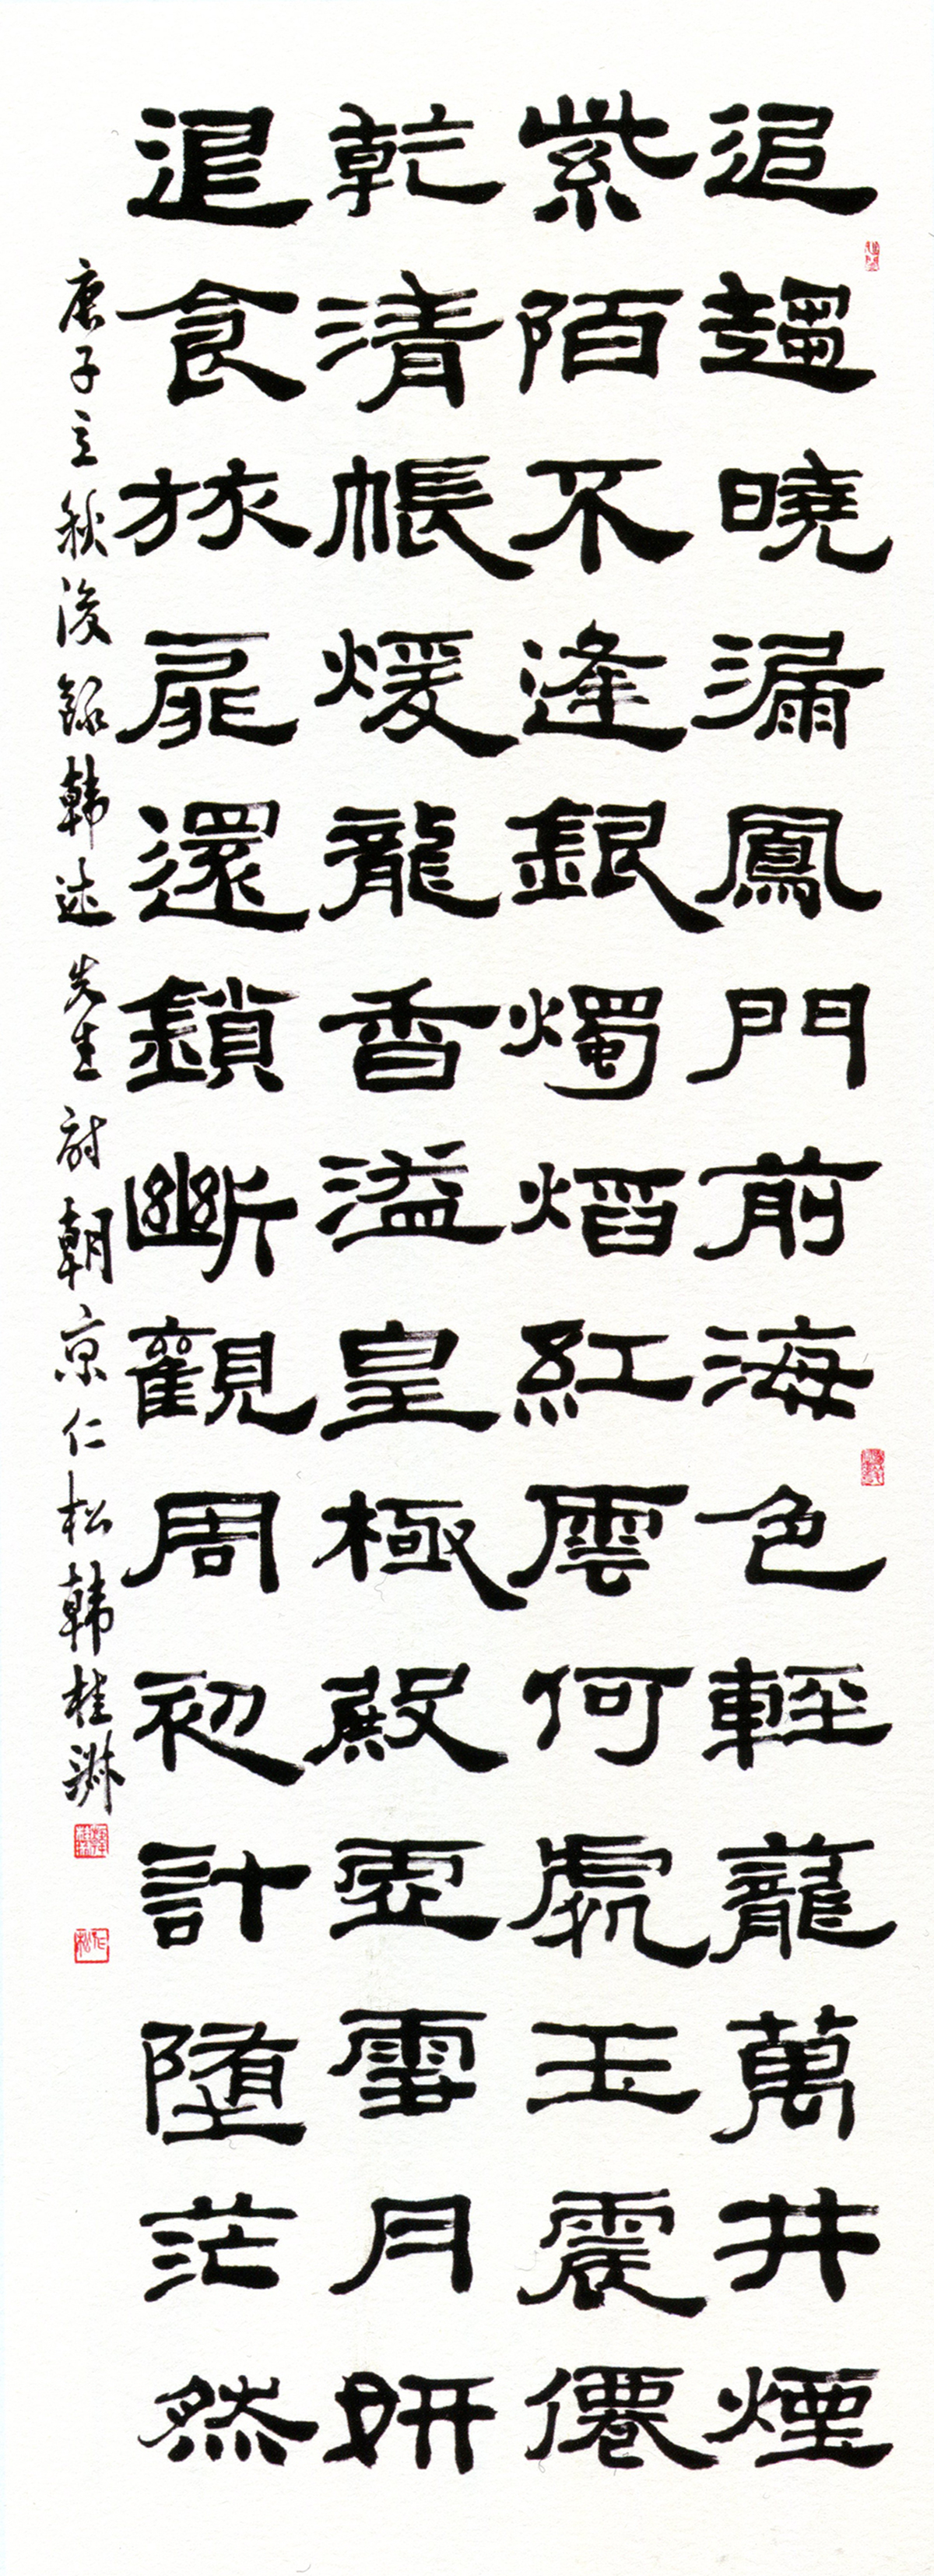 追趨曉漏鳳門前海色輕蘢萬井煙
紫陌不逢銀燭熖紅雲何處玉震僊
乾清帳煖龍香溢皇極殿雪月妍
退食旅扉還鎖斷觀周初計墮茫然
庚子立秋後錄韓述先生耐朝京仁松韓桂琳